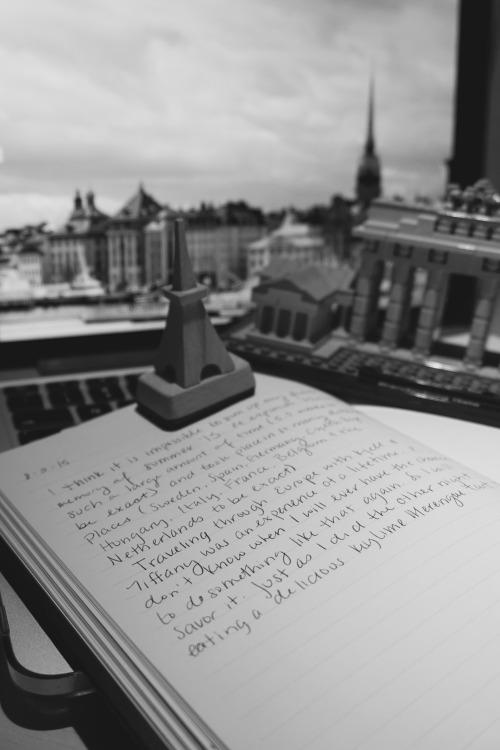 8·2·15
I think it is impossible to sum up my
memory of summer 15. re
such a large amount of time (5.5
be exact) and took place in so many
Places (Sweden, Spain, Germany,
Hungary, Italy, France, Belgium & the
Netherlands to be exact)
Traveling through Europe with Kyle &
Tiffany was an experience of a lifetime. I
don't know when I will ever have the chance
to do something like that again. So I will
savor it. Just as I did the other night
eating a delicious Keylime Merengue tart